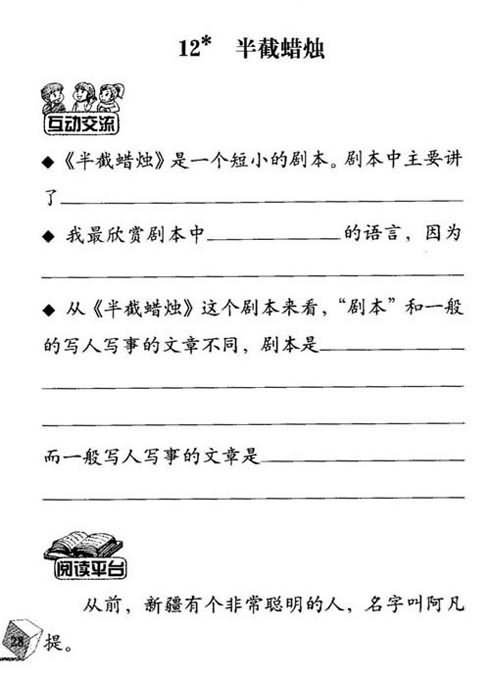 12* 半截蜡烛
互动交流
◆《半截蜡烛》是一个短小的剧本。剧本中主要讲
了
◆ 我最欣赏剧本中 的语言，因为
◆ 从《半截蜡烛》这个剧本来看，“剧本”和一般
的写人写事的文章不同，剧本是
而一般写人写事的文章是
阅读平台
从前，新疆有个非常聪明的人，名字叫阿凡
28
提。